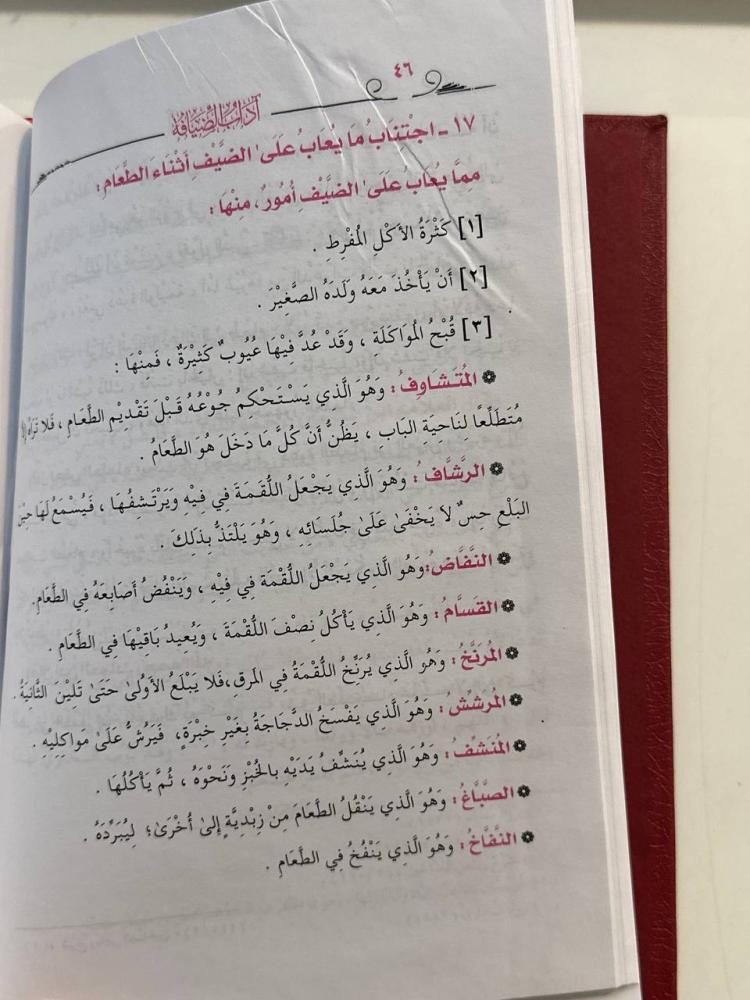 ٤٦
آدَابُ الضِّيَافَةِ
١٧ ـ اجْتِنَابُ مَا يُعَابُ عَلَى الضَّيْفِ أَثْنَاءَ الطَّعَامِ :
مِمَّا يُعَابُ عَلَى الضَّيْفِ أُمُورٌ، مِنْهَا :
[١] كَثْرَةُ الأَكْلِ المُفْرِطِ .
[٢] أَنْ يَأْخُذَ مَعَهُ وَلَدَهُ الصَّغِيْرَ .
[٣] قُبْحُ المُوَاكَلَةِ ، وَقَدْ عُدَّ فِيْهَا عُيُوبٌ كَثِيْرَةٌ ، فَمِنْهَا :
❁ المُتَشَاوِفُ : وَهُوَ الَّذِي يَسْتَحْكِمُ جُوْعُهُ قَبْلَ تَقْدِيْمِ الطَّعَامِ ، فَلا تَرَاهُ
مُتَطَلِّعًا لِنَاحِيَةِ البَابِ ، يَظُنُّ أَنَّ كُلَّ مَا دَخَلَ هُوَ الطَّعَامُ .
❁ الرَّشَّافُ : وَهُوَ الَّذِي يَجْعَلُ اللُّقْمَةَ فِي فِيْهِ وَيَرْتَشِفُهَا ، فَيُسْمَعُ لَهَا حِيْنَ
البَلْعِ حِسٌ لاَ يَخْفَى عَلَى جُلَسَائِهِ ، وَهُوَ يَلْتَذُّ بِذَلِكَ .
❁ النَّفَّاضُ: وَهُوَ الَّذِي يَجْعَلُ اللُّقْمَةَ فِي فِيْهِ ، وَيَنْفُضُ أَصَابِعَهُ فِي الطَّعَامِ.
❁ القَسَّامُ : وَهُوَ الَّذِي يَأْكُلُ نِصْفَ اللُّقْمَةَ ، وَيُعِيدُ بَاقِيْهَا فِي الطَّعَامِ .
❁ المُرَنِّخُ : وَهُوَ الَّذِي يُرَنِّخُ اللُّقْمَةَ فِي المَرقِ،فَلا يَبْلَعُ الأَوْلَى حَتَى تَلِيْنَ الثَّانِيَةُ .
❁ المُرَشِّشُ : وَهُوَ الَّذِي يَفْسَخُ الدَّجَاجَةَ بِغَيْرِ خِبْرَةٍ، فَيَرُشُّ عَلَى مُوَاكِلِيْهِ .
❁ المُنَشِّفُ : وَهُوَ الَّذِي يُنَشِّفُ يَدَيْهِ بِالخُبْزِ وَنَحْوَهُ ، ثُمَّ يَأْكُلُهَا .
❁ الصَّبَّاغُ : وَهُوَ الَّذِي يَنْقُلُ الطَّعَامَ مِنْ زِبْدِيَّةٍ إِلَى أُخْرَى؛ لِيُبَرِّدَهُ .
❁ النَّفَّاخُ : وَهُوَ الَّذِي يَنْفُخُ فِي الطَّعَامِ .